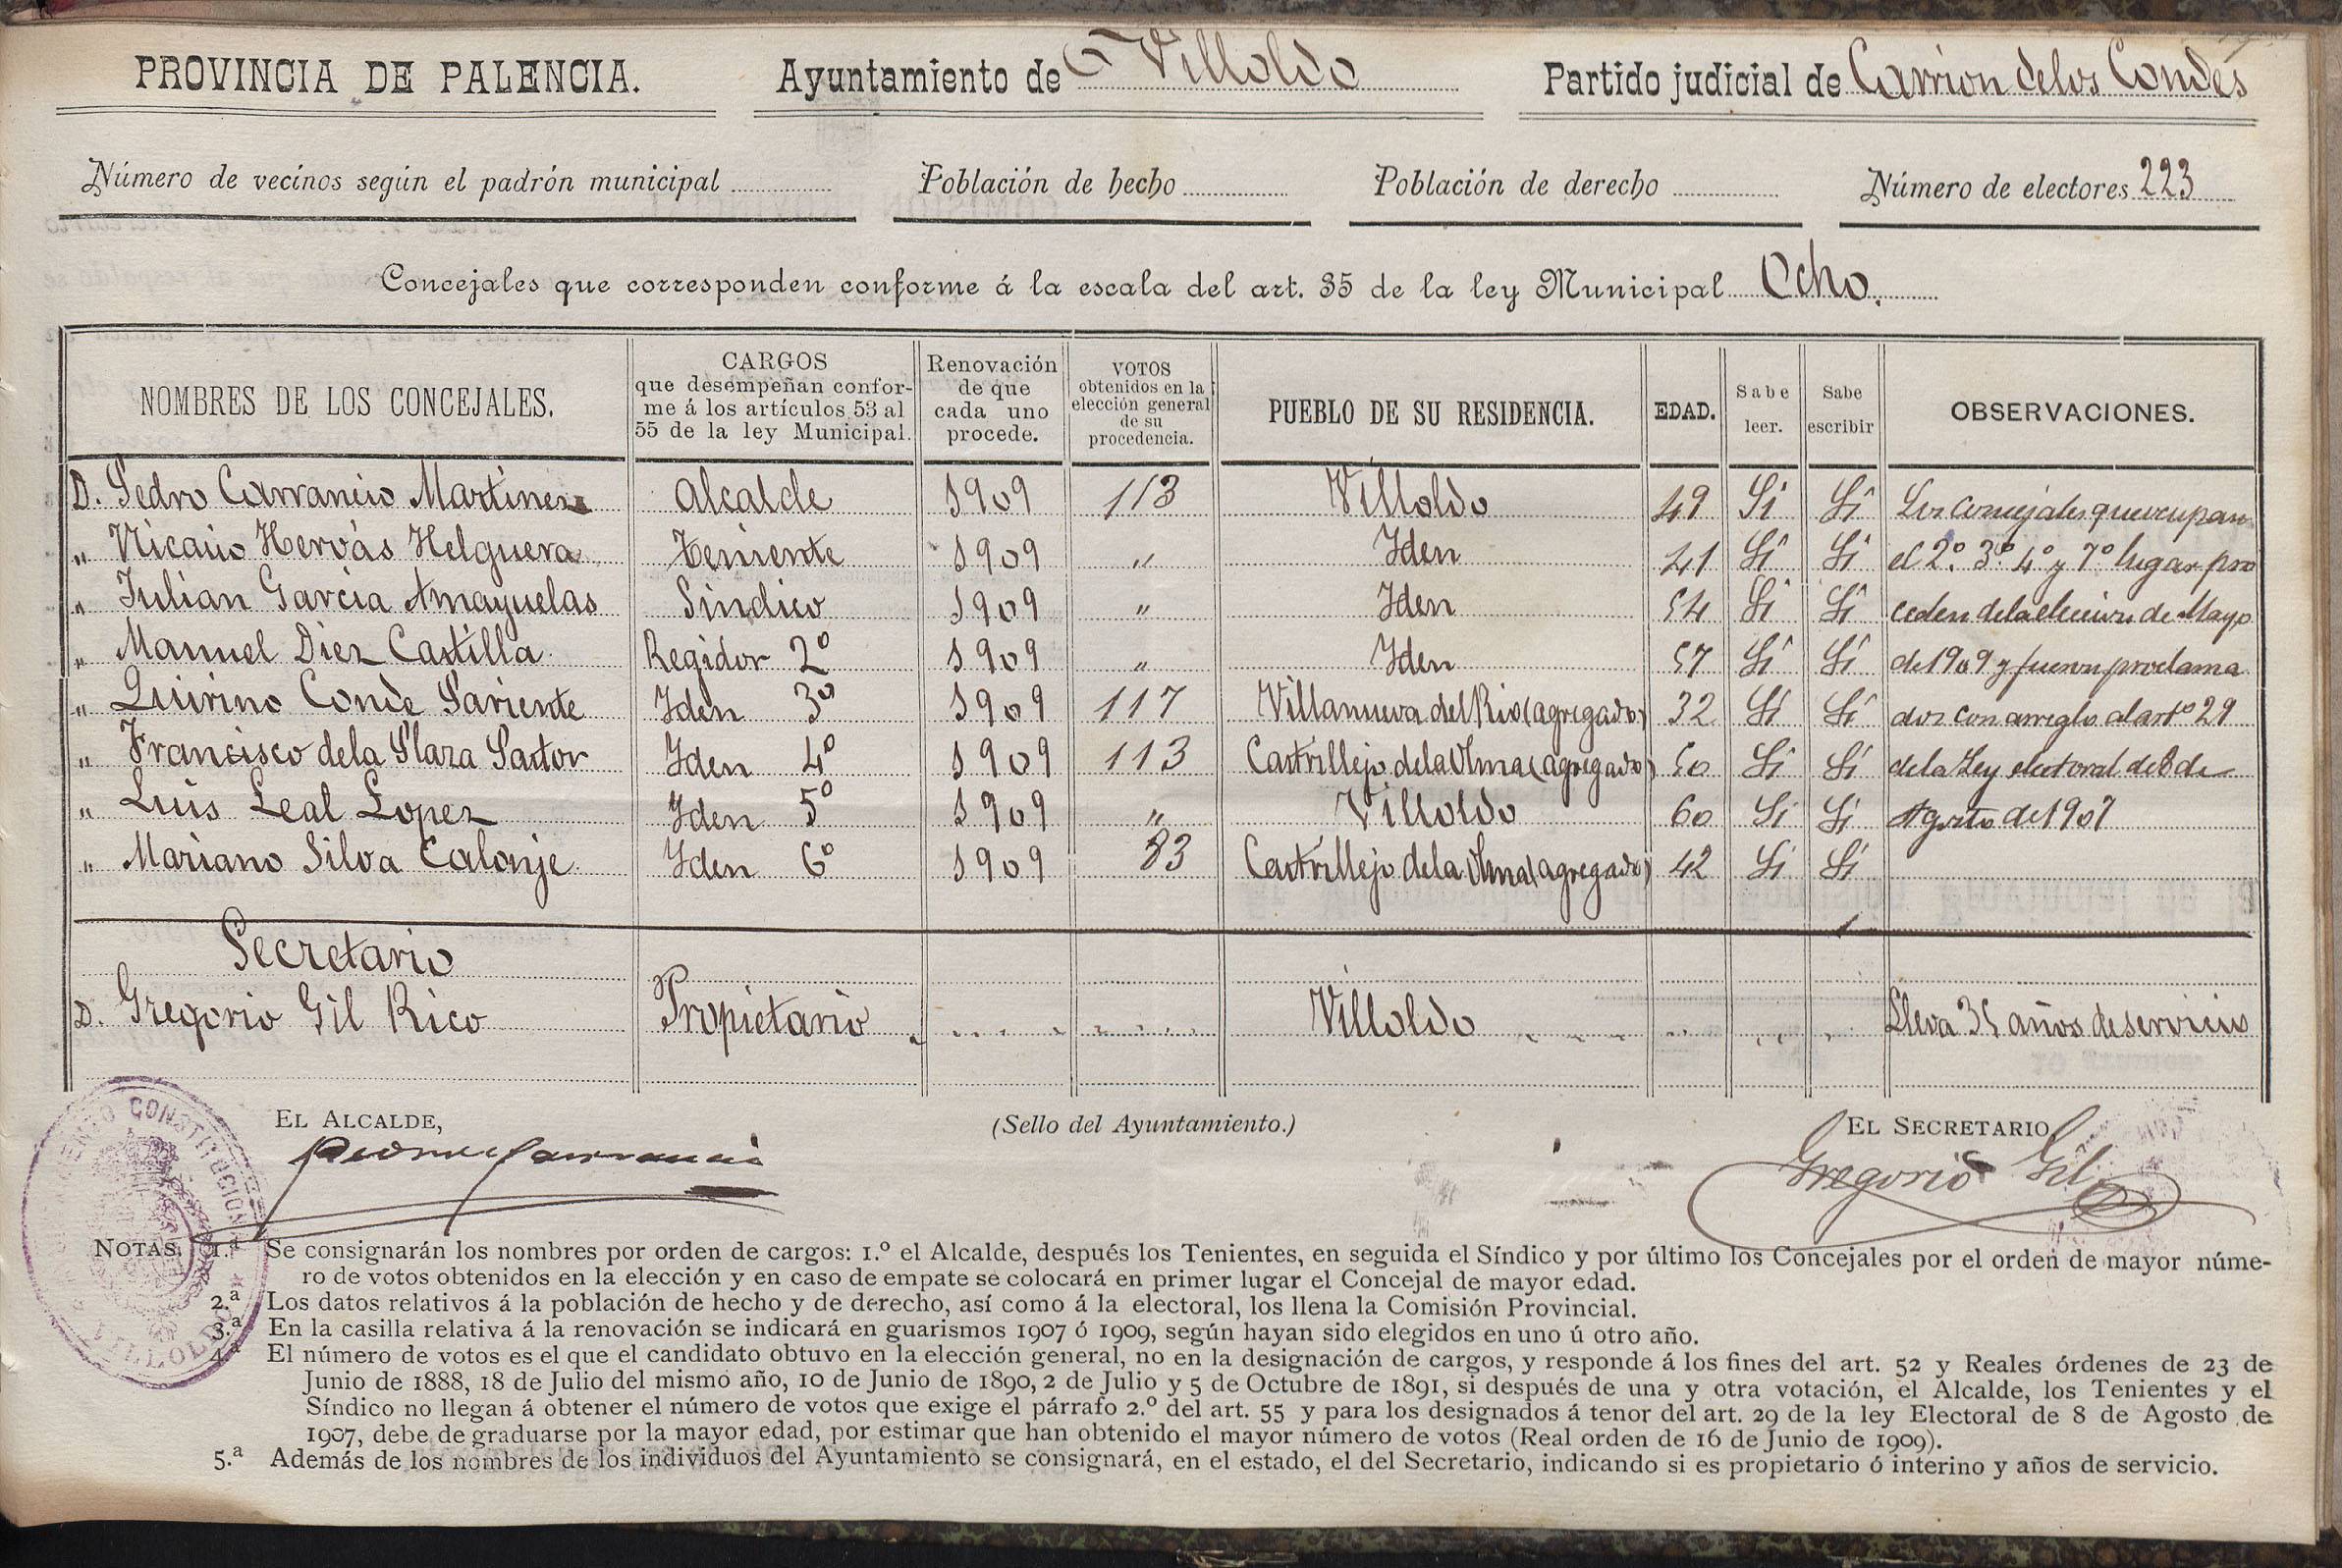 PROVINCIA DE PALENCIA. Ayuntamiento de Villoldo Partido judicial de Carrion de los Condes
Número de vecinos según el padrón municipal Población de hecho Población de derecho Número de electores 223
Concejales que corresponden conforme á la escala del art. 35 de la ley Municipal Ocho.
NOMBRES DE LOS CONCEJALES. CARGOS que desempeñan confor-me á los artículos 53 al 55 de la ley Municipal. Renovación de que cada uno procede. VOTOS obtenidos en la elección general de su procedencia. PUEBLO DE SU RESIDENCIA. EDAD. Sabe leer. Sabe escribir OBSERVACIONES.
D. Pedro Carrancio Martinez Alcalde 1909 113 Villoldo 49 Si Si Los Concejales que ocupan
" Nicasio Hervás Helguera Teniente 1909 " Iden 41 Si Si el 2º. 3º. 4º y 7º lugar pro
" Julian Garcia Amayuelas Sindico 1909 " Iden 54 Si Si ceden de la eleccion de Mayo
" Manuel Diez Castilla Regidor 2º 1909 " Iden 57 Si Si de 1909 y fueron proclama
" Quirino Conde Pariente Iden 3º 1909 117 Villanueva del Rio (agregado) 32 Si Si dos con arreglo al artº 29
" Francisco de la Plaza Pastor Iden 4º 1909 113 Castrillejo de la Olma (agregado) 50 Si Si de la Ley electoral de 8 de
" Luis Leal Lopez Iden 5º 1909 " Villoldo 60 Si Si Agosto de 1907
" Mariano Silva Calonje Iden 6º 1909 83 Castrillejo de la Olma (agregado) 42 Si Si
Secretario
D. Gregorio Gil Rico Propietario Villoldo Lleva 35 años de servicio
EL ALCALDE, (Sello del Ayuntamiento.) EL SECRETARIO
Pedro Carrancio Gregorio Gil
CONSTITUCIONAL
VILLOLDO
NOTAS. 1.ª Se consignarán los nombres por orden de cargos: 1.º el Alcalde, después los Tenientes, en seguida el Síndico y por último los Concejales por el orden de mayor núme-
ro de votos obtenidos en la elección y en caso de empate se colocará en primer lugar el Concejal de mayor edad.
2.ª Los datos relativos á la población de hecho y de derecho, así como á la electoral, los llena la Comisión Provincial.
3.ª En la casilla relativa á la renovación se indicará en guarismos 1907 ó 1909, según hayan sido elegidos en uno ú otro año.
4.ª El número de votos es el que el candidato obtuvo en la elección general, no en la designación de cargos, y responde á los fines del art. 52 y Reales órdenes de 23 de
Junio de 1888, 18 de Julio del mismo año, 10 de Junio de 1890, 2 de Julio y 5 de Octubre de 1891, si después de una y otra votación, el Alcalde, los Tenientes y el
Síndico no llegan á obtener el número de votos que exige el párrafo 2.º del art. 55 y para los designados á tenor del art. 29 de la ley Electoral de 8 de Agosto de
1907, debe de graduarse por la mayor edad, por estimar que han obtenido el mayor número de votos (Real orden de 16 de Junio de 1909).
5.ª Además de los nombres de los individuos del Ayuntamiento se consignará, en el estado, el del Secretario, indicando si es propietario ó interino y años de servicio.